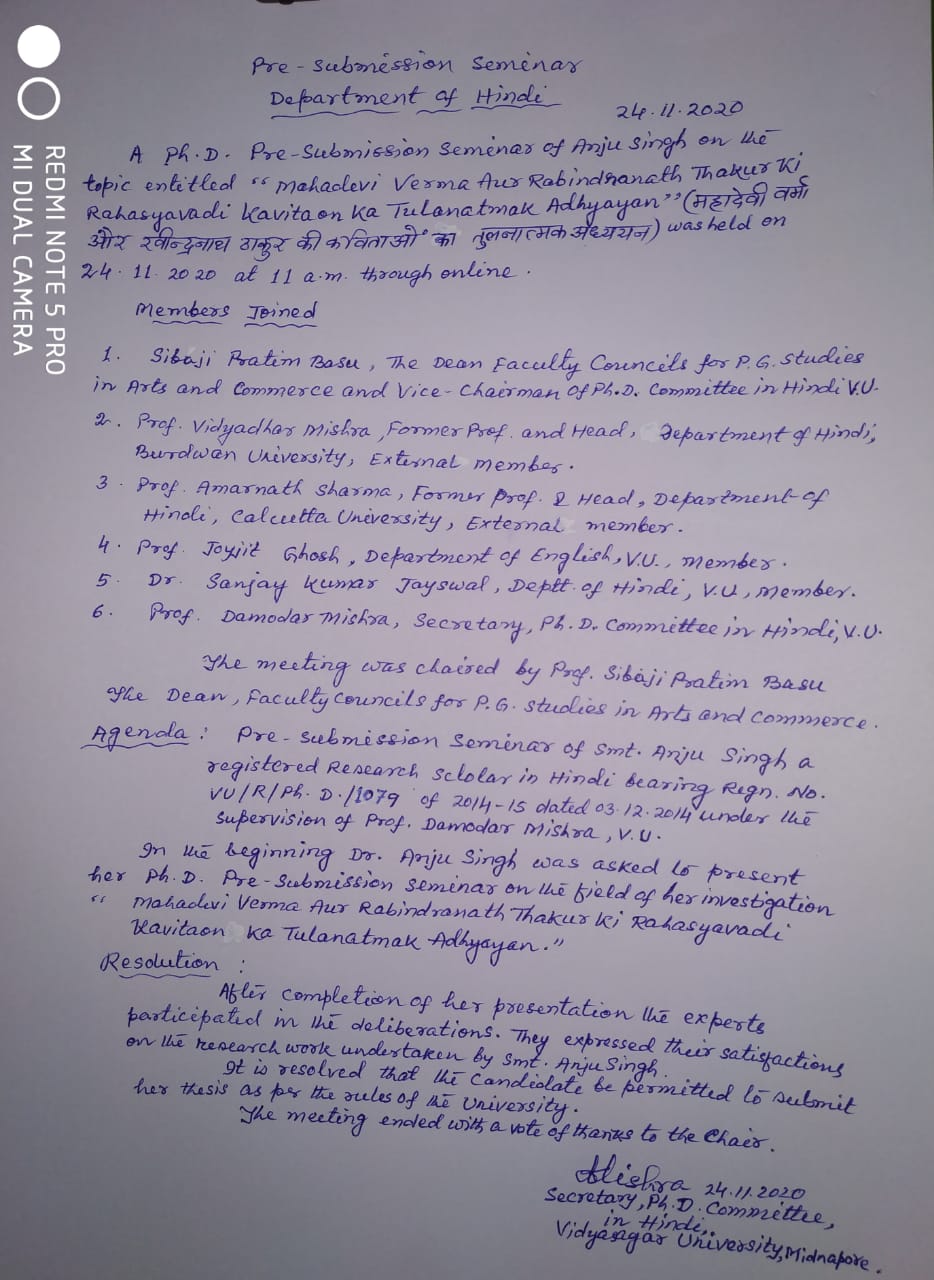 Pre-Submission Seminar
Department of Hindi
24.11.2020
A Ph.D. Pre-Submission Seminar of Anju Singh on the
topic entitled "Mahadevi Verma Aur Rabindranath Thakur Ki
Rahasyavadi Kavitaon Ka Tulanatmak Adhyayan" (महादेवी वर्मा
और रवीन्द्रनाथ ठाकुर की कविताओं का तुलनात्मक अध्ययन) was held on
24.11.2020 at 11 a.m. through online.
Members Joined
1. Sibaji Pratim Basu, The Dean Faculty Councils for P.G. Studies
in Arts and Commerce and Vice-Chairman of Ph.D. Committee in Hindi V.U.
2. Prof. Vidyadhar Mishra, Former Prof. and Head, Department of Hindi,
Burdwan University, External member.
3. Prof. Amarnath Sharma, Former Prof. & Head, Department of
Hindi, Calcutta University, External member.
4. Prof. Joyjit Ghosh, Department of English, V.U., member.
5. Dr. Sanjay Kumar Jayswal, Deptt. of Hindi, V.U, member.
6. Prof. Damodar Mishra, Secretary, Ph.D. Committee in Hindi, V.U.
The meeting was chaired by Prof. Sibaji Pratim Basu
The Dean, Faculty Councils for P.G. Studies in Arts and Commerce.
Agenda : Pre-submission Seminar of Smt. Anju Singh a
registered Research Scholar in Hindi bearing Regn. No.
VU/R/Ph.D./1079 of 2014-15 dated 03.12.2014 under the
Supervision of Prof. Damodar Mishra, V.U.
In the beginning Dr. Anju Singh was asked to present
her Ph.D. Pre-Submission Seminar on the field of her investigation
" Mahadevi Verma Aur Rabindranath Thakur Ki Rahasyavadi
Kavitaon Ka Tulanatmak Adhyayan."
Resolution :
After completion of her presentation the experts
participated in the deliberations. They expressed their satisfactions
on the research work undertaken by Smt. Anju Singh.
It is resolved that the Candidate be permitted to submit
her thesis as per the rules of the University.
The meeting ended with a vote of thanks to the Chair.
Mishra 24.11.2020
Secretary, Ph.D. Committee,
in Hindi,
Vidyasagar University, Midnapore.
REDMI NOTE 5 PRO
MI DUAL CAMERA